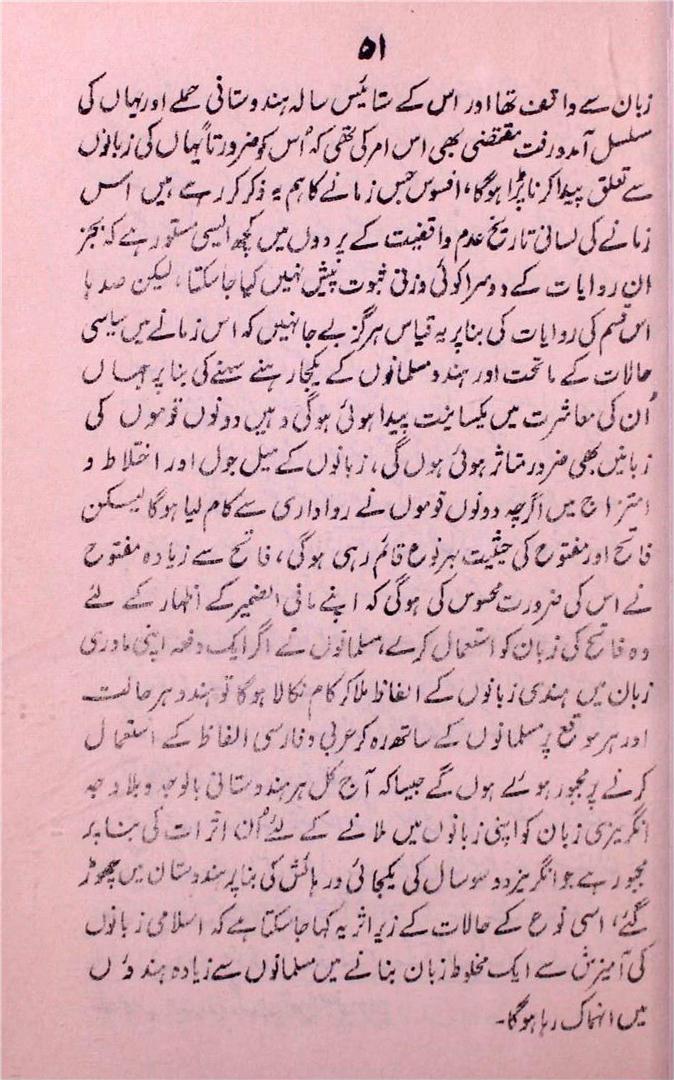 ۵۱
زبان سے واقف تھا اور اس کے ستائیس سالہ ہندوستانی حملے اور یہاں کی
مسلسل آمدورفت مقتضی بھی اس امر کی تھی کہ اُس کو ضرورتاً یہاں کی زبانوں
سے تعلق پیدا کرنا پڑا ہوگا، افسوس جس زمانے کا ہم یہ ذکر کر رہے ہیں اس
زمانے کی لسانی تاریخ عدم واقفیت کے پردوں میں کچھ ایسی مستور ہے کہ بجز
ان روایات کے دوسرا کوئی وزنی ثبوت پیش نہیں کیا جا سکتا، لیکن صدہا
اس قسم کی روایات کی بنا پر یہ قیاس ہرگز بے جا نہیں کہ اس زمانے میں سیاسی
حالات کے ماتحت اور ہندو مسلمانوں کے یکجا رہنے سہنے کی بنا پر جہاں
اُن کی معاشرت میں یکسانیت پیدا ہوئی ہوگی وہیں دونوں قوموں کی
زبانیں بھی ضرور متاثر ہوئی ہوں گی، زبانوں کے میل جول اور اختلاط و
امتزاج میں اگرچہ دونوں قوموں نے رواداری سے کام لیا ہوگا لیکن
فاتح اور مفتوح کی حیثیت بہر نوع قائم رہی ہوگی، فاتح سے زیادہ مفتوح
نے اس کی ضرورت محسوس کی ہوگی کہ اپنے مافی الضمیر کے اظہار کے لئے
وہ فاتح کی زبان کو استعمال کرے، مسلمانوں نے اگر ایک دفعہ اپنی مادری
زبان میں ہندی زبانوں کے الفاظ ملا کر کام نکالا ہوگا تو ہندو ہر حالت
اور ہر موقع پر مسلمانوں کے ساتھ رہ کر عربی و فارسی الفاظ کے استعمال
کرنے پر مجبور ہوئے ہوں گے جیسا کہ آج کل ہر ہندوستانی بالوجہ و بلا وجہ
انگریزی زبان کو اپنی زبانوں میں ملانے کے لئے اُن اثرات کی بنا پر
مجبور ہے جو انگریز دو سو سال کی یکجائی و رہائش کی بنا پر ہندوستان میں چھوڑ
گئے، اسی نوع کے حالات کے زیر اثر یہ کہا جا سکتا ہے کہ اسلامی زبانوں
کی آمیزش سے ایک مخلوط زبان بنانے میں مسلمانوں سے زیادہ ہندوؤں
میں انہماک رہا ہوگا۔